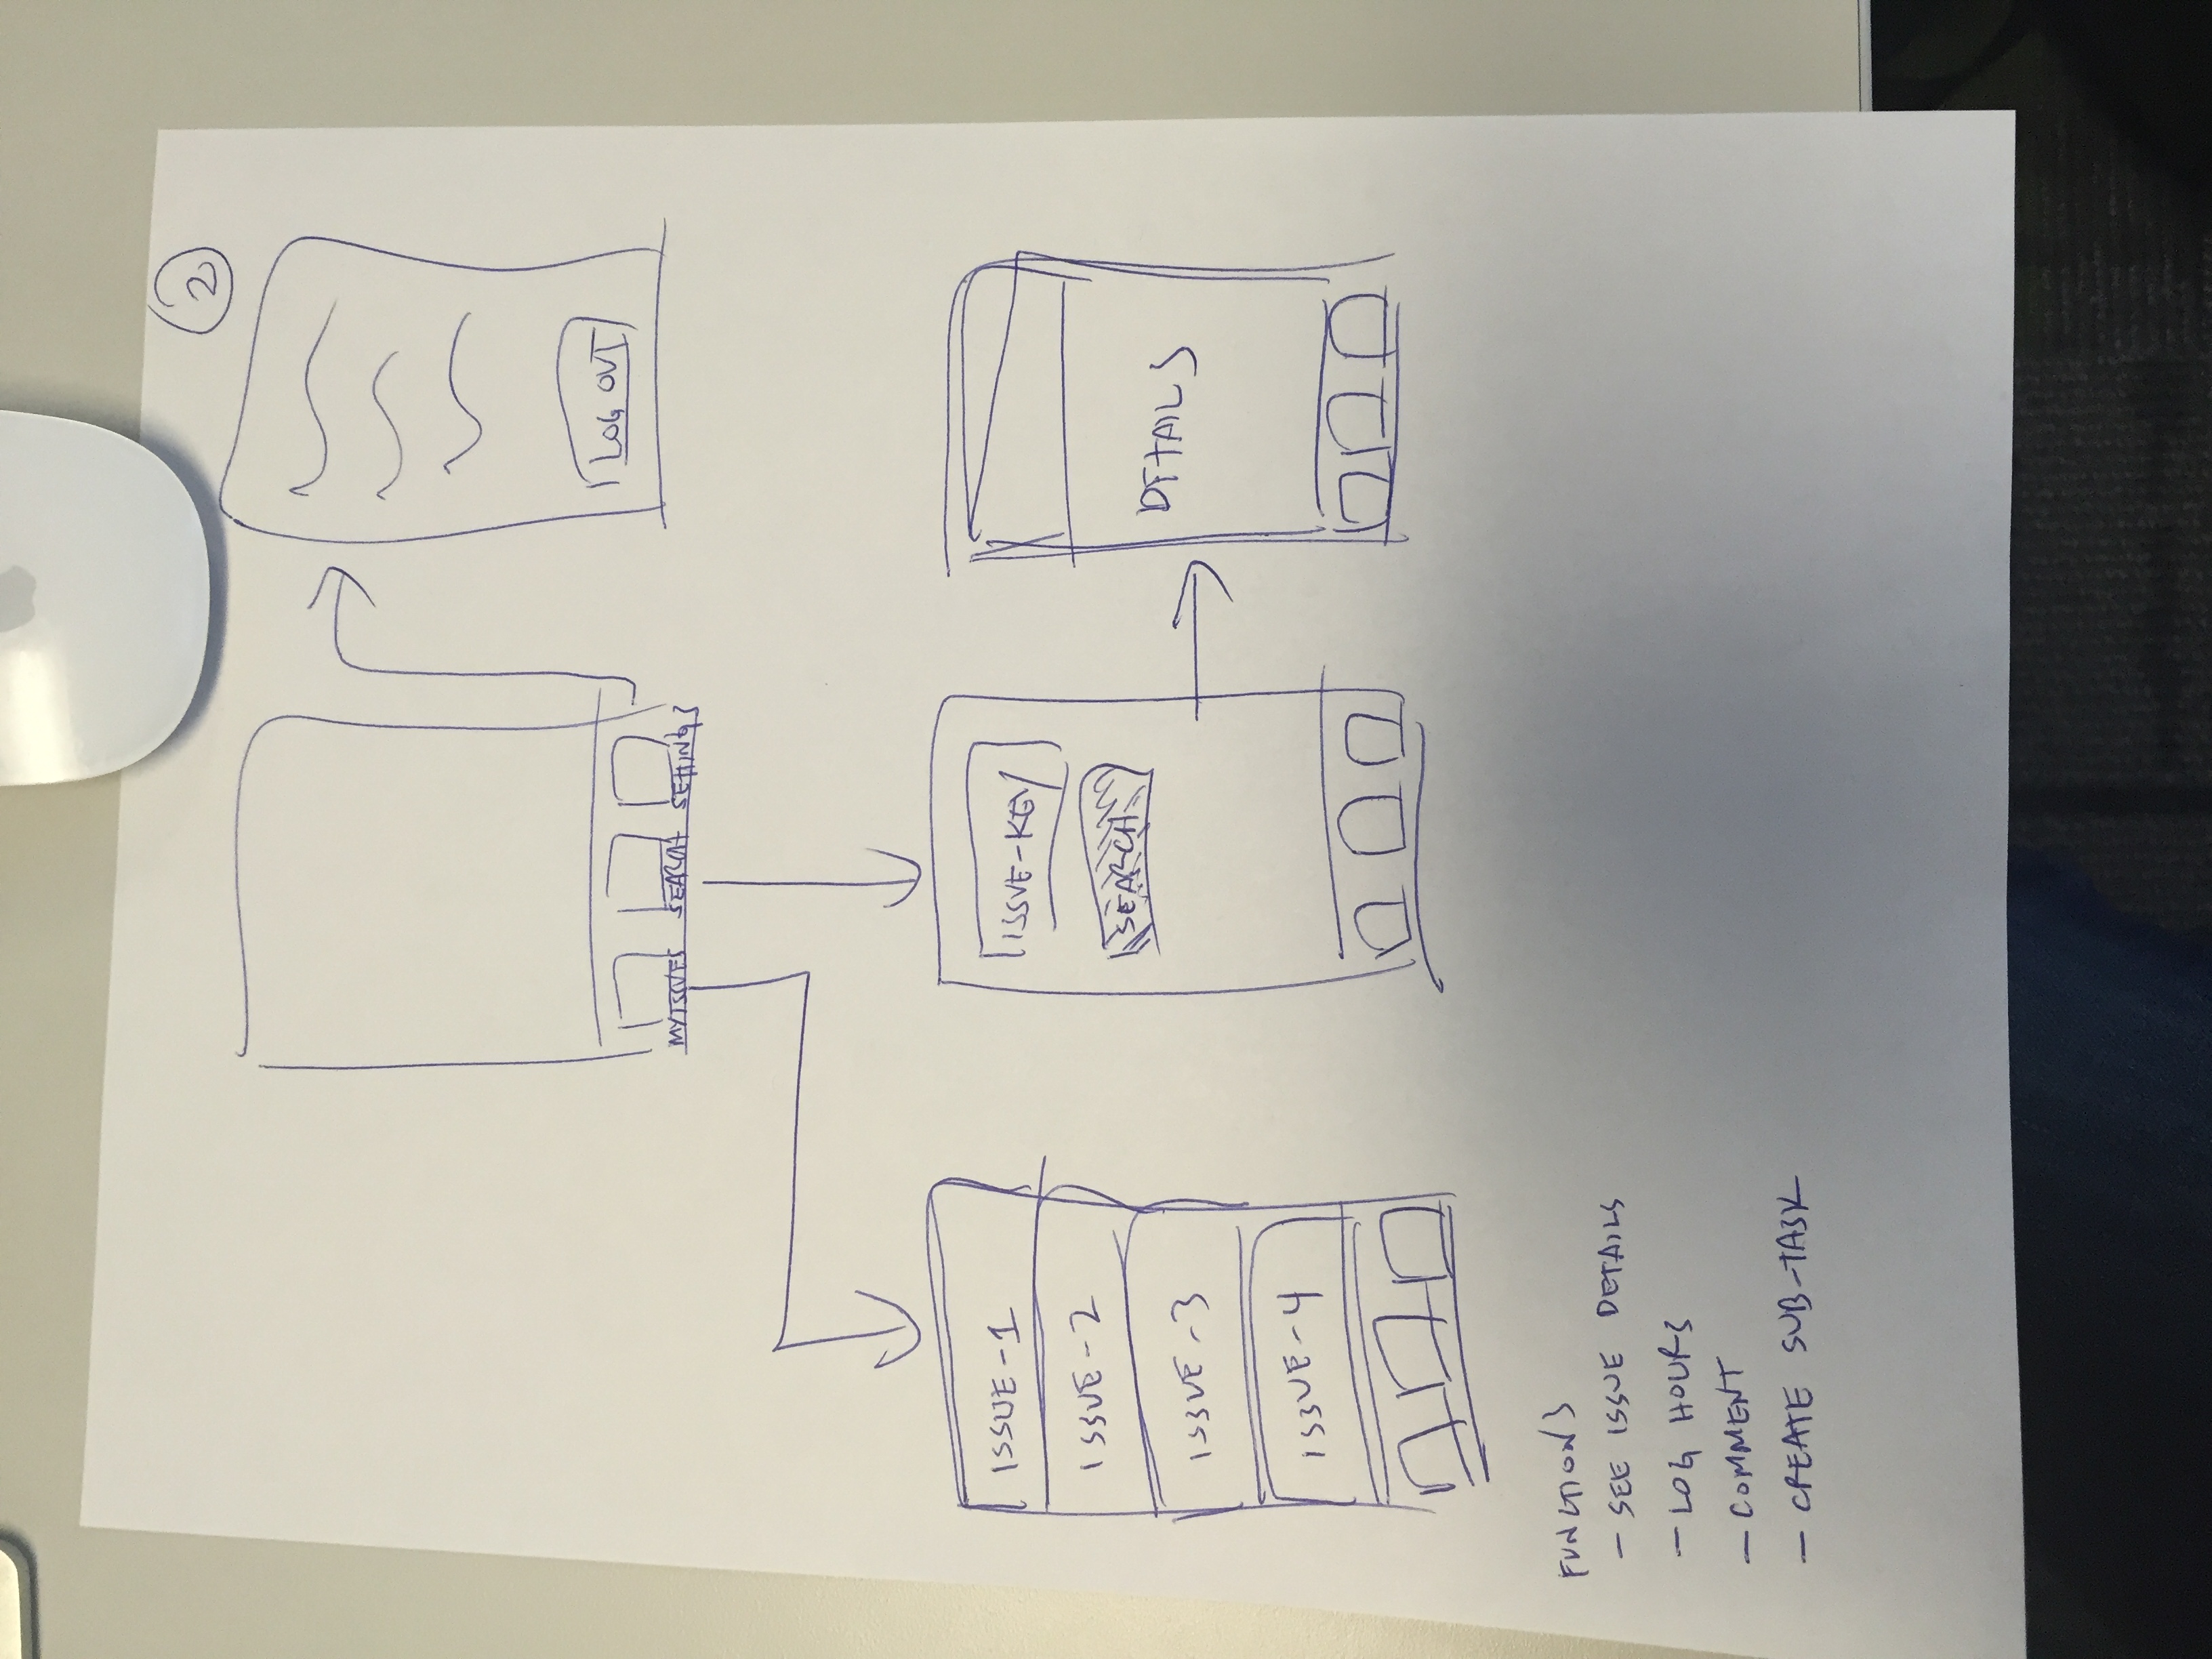 2
LOG OUT
MY ISSUES SEARCH SETTINGS
ISSUE-1
ISSUE-2
ISSUE-3
ISSUE-4
ISSUE-KEY
SEARCH
DETAILS
FUNCTIONS
- SEE ISSUE DETAILS
- LOG HOURS
- COMMENT
- CREATE SUB-TASK